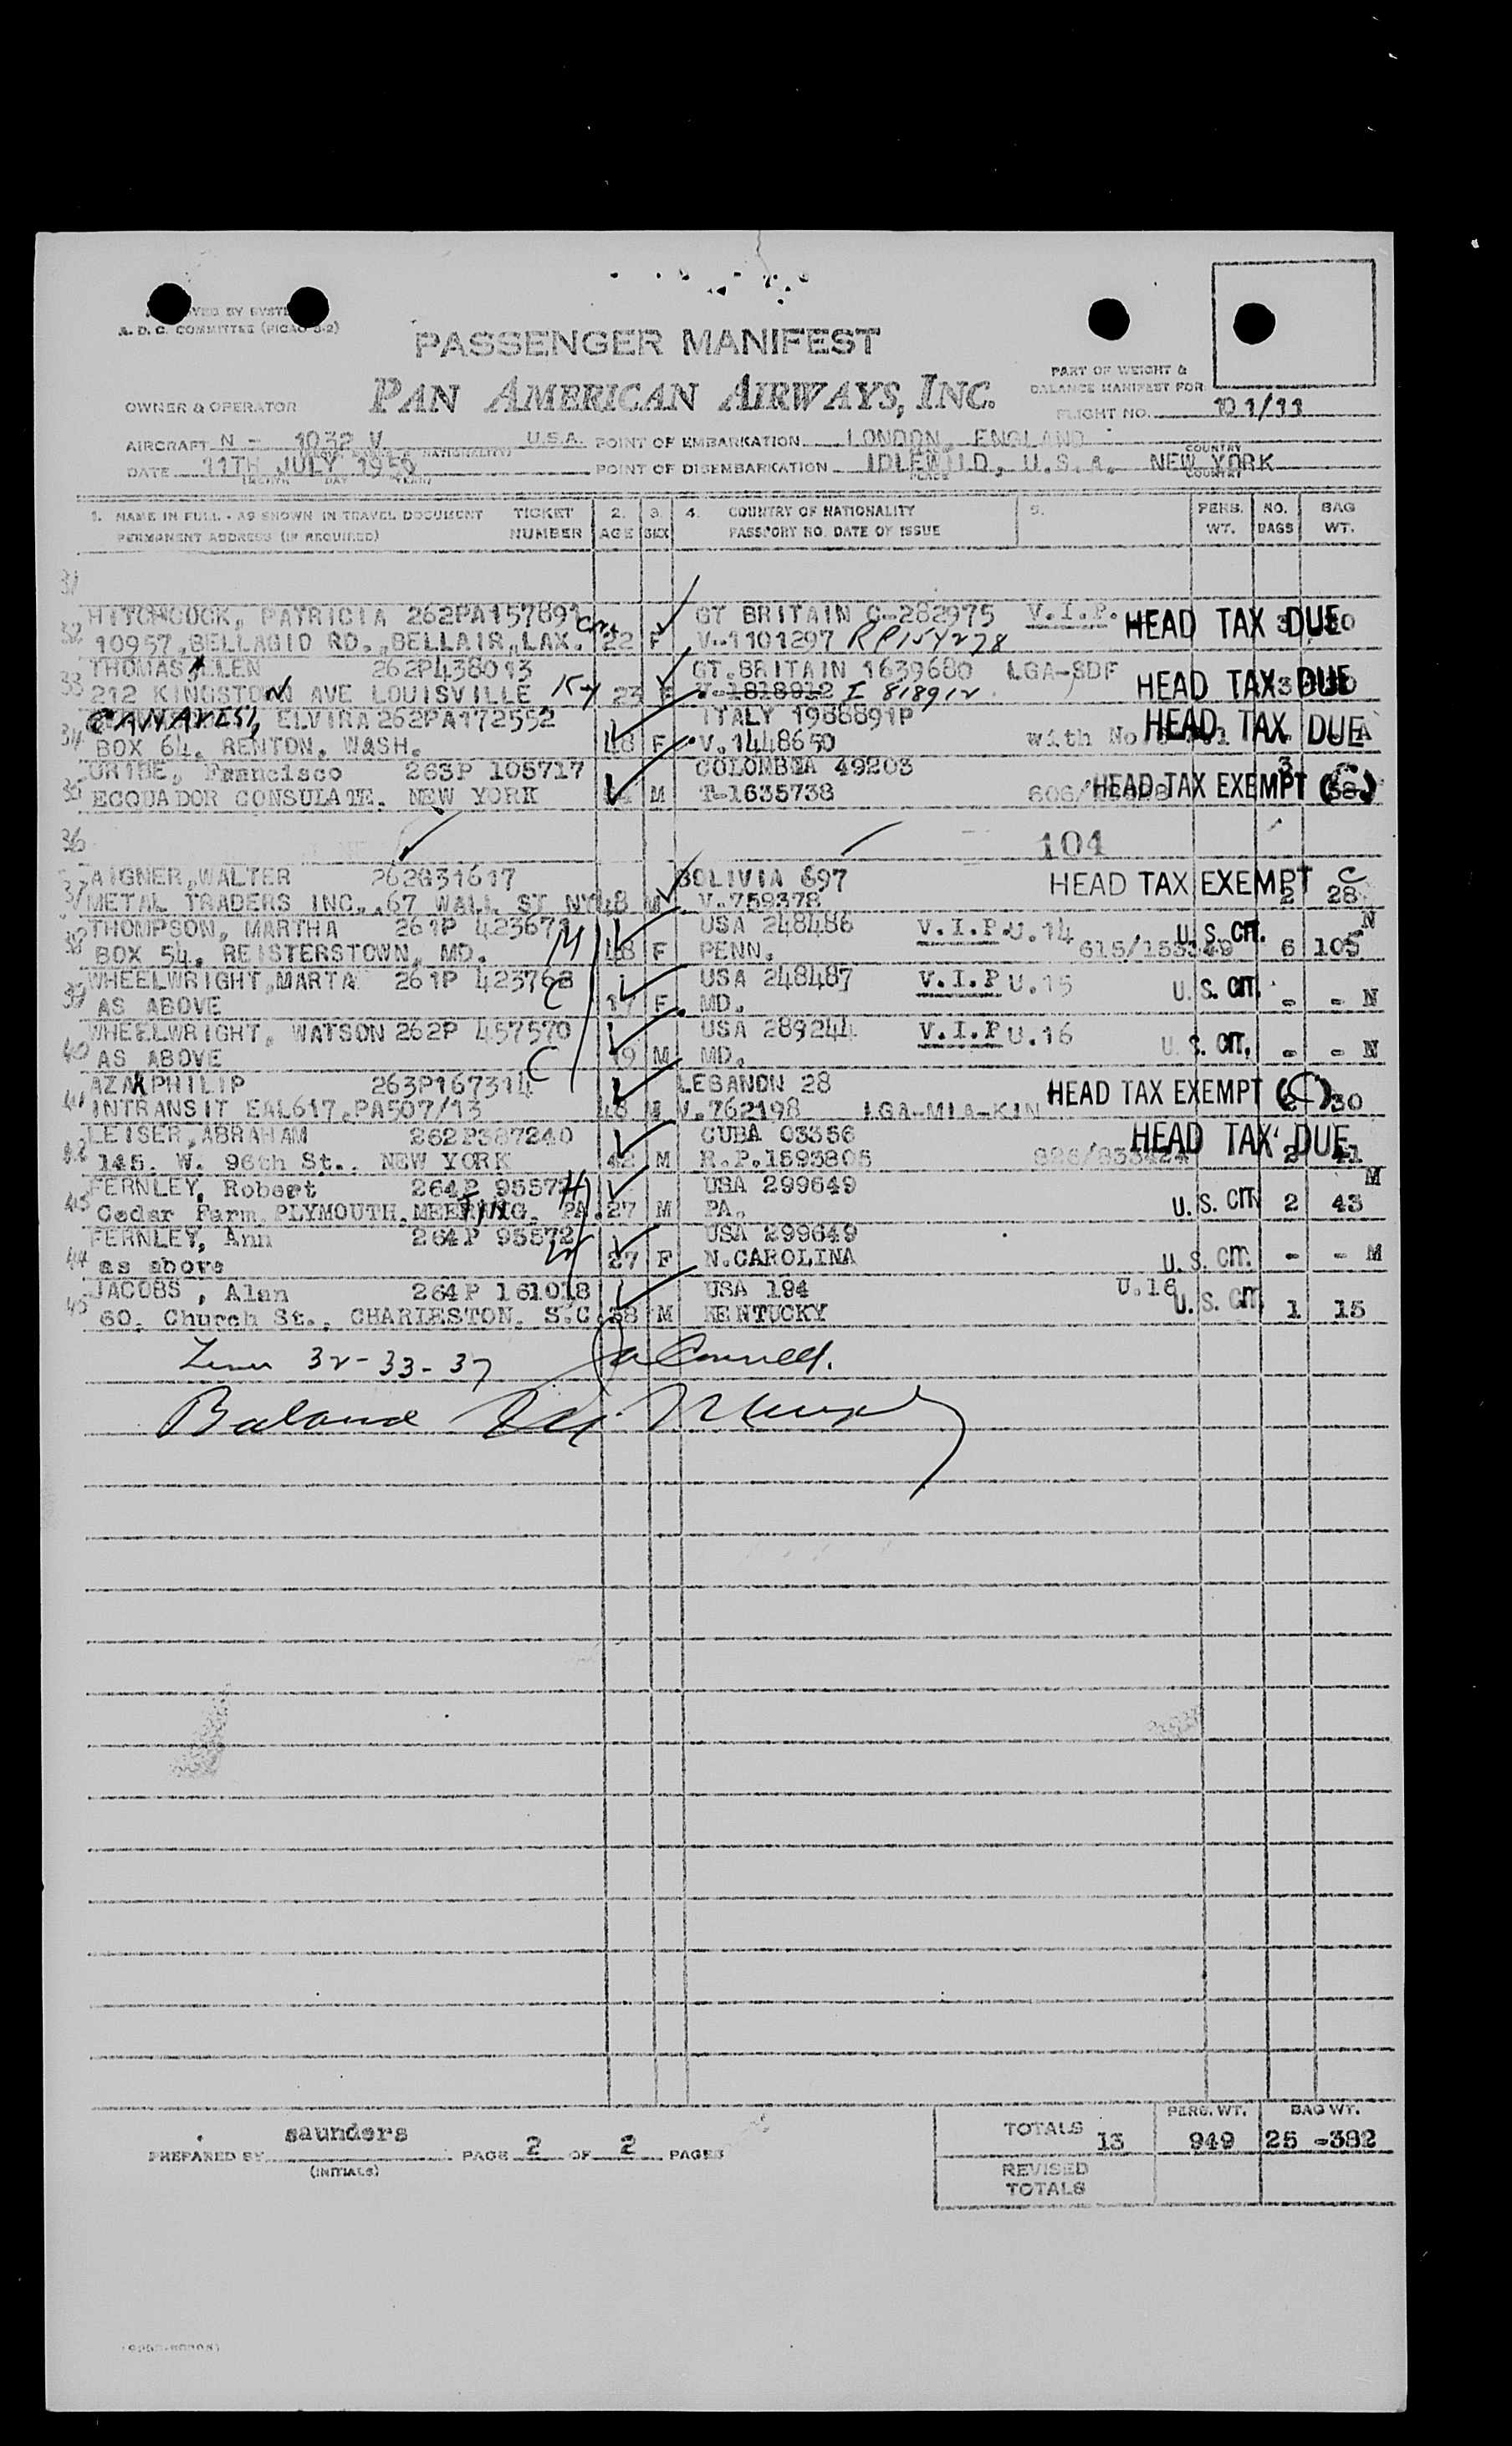 A. D. C. COMMITTEE (PICAO S-2)
PASSENGER MANIFEST
PAN AMERICAN AIRWAYS, INC.
PART OF WEIGHT &
BALANCE MANIFEST FOR
OWNER & OPERATOR
FLIGHT NO. 101/11
AIRCRAFT N - 1032 V U.S.A. POINT OF EMBARKATION LONDON, ENGLAND
COUNTRY
DATE 11TH JULY 1950 POINT OF DISEMBARKATION IDLEWILD, U.S.A. NEW YORK
PLACE COUNTRY
1. NAME IN FULL - AS SHOWN IN TRAVEL DOCUMENT TICKET 2. 3. 4. COUNTRY OF NATIONALITY 5. PERS. NO. BAG
PERMANENT ADDRESS (IF REQUIRED) NUMBER AGE SEX PASSPORT NO. DATE OF ISSUE WT. BAGS WT.
31
HITCHCOCK, PATRICIA 262PA157891 GT BRITAIN C-282975 V.I.P. HEAD TAX DUE
32 10957, BELLAGIO RD., BELLAIR, LAX. 22 F V-1101297 RP154278
THOMAS ALLEN 262P438013 GT. BRITAIN 1639680 LGA-SDF HEAD TAX DUE
33 212 KINGSTON AVE LOUISVILLE Ky 23 V-1818912 I 818912
CANAVESI, ELVIRA 262PA172552 ITALY 1988891P HEAD TAX DUE
34 BOX 64, RENTON, WASH. 48 F V.1448650 with No.
URIBE, Francisco 263P 105717 COLOMBIA 49203 3
35 ECQUADOR CONSULATE. NEW YORK M T-1635738 606/ HEAD TAX EXEMPT (C) 38
36 104
AIGNER, WALTER 262G31617 BOLIVIA 697 HEAD TAX EXEMPT C
37 METAL TRADERS INC., 67 WALL ST NY 48 M V.759378 2 28
THOMPSON, MARTHA 261P 423671 M USA 248486 V.I.P. U.14 U.S. CIT. N
38 BOX 54, REISTERSTOWN, MD. 48 F PENN. 615/ 6 105
WHEELWRIGHT, MARTA 261P 423768 C USA 248487 V.I.P U.15 U.S. CIT.
39 AS ABOVE 17 F MD. - - N
WHEELWRIGHT, WATSON 262P 457570 USA 289244 V.I.P U.16 U.S. CIT.
40 AS ABOVE C 19 M MD. - - N
AZAR PHILIP 263P167314 LEBANON 28 HEAD TAX EXEMPT (C)
41 INTRANSIT EAL617, PA507/13 48 M V.762198 LGA-MIA-KIN 2 30
LEISER, ABRAHAM 262P387240 CUBA 03356 HEAD TAX DUE
42 145. W. 96th St., NEW YORK 42 M R.P.1593805 2 41
FERNLEY, Robert 264P 95571 USA 299649 U.S. CIT. M
43 Cedar Farm. PLYMOUTH, MEETING, PA. 27 M PA. 2 43
FERNLEY, Ann 264P 95572 USA 299649
44 as above 27 F N.CAROLINA U.S. CIT. - - M
JACOBS, Alan 264P 161018 USA 194 U.18 U.S. CIT.
45 60, Church St., CHARLESTON, S.C. 38 M KENTUCKY 1 15
Lines 32-33-37
saunders
PREPARED BY PAGE 2 OF 2 PAGES
(INITIALS)
PERS. WT. BAG WT.
TOTALS 13 949 25 -382
REVISED
TOTALS